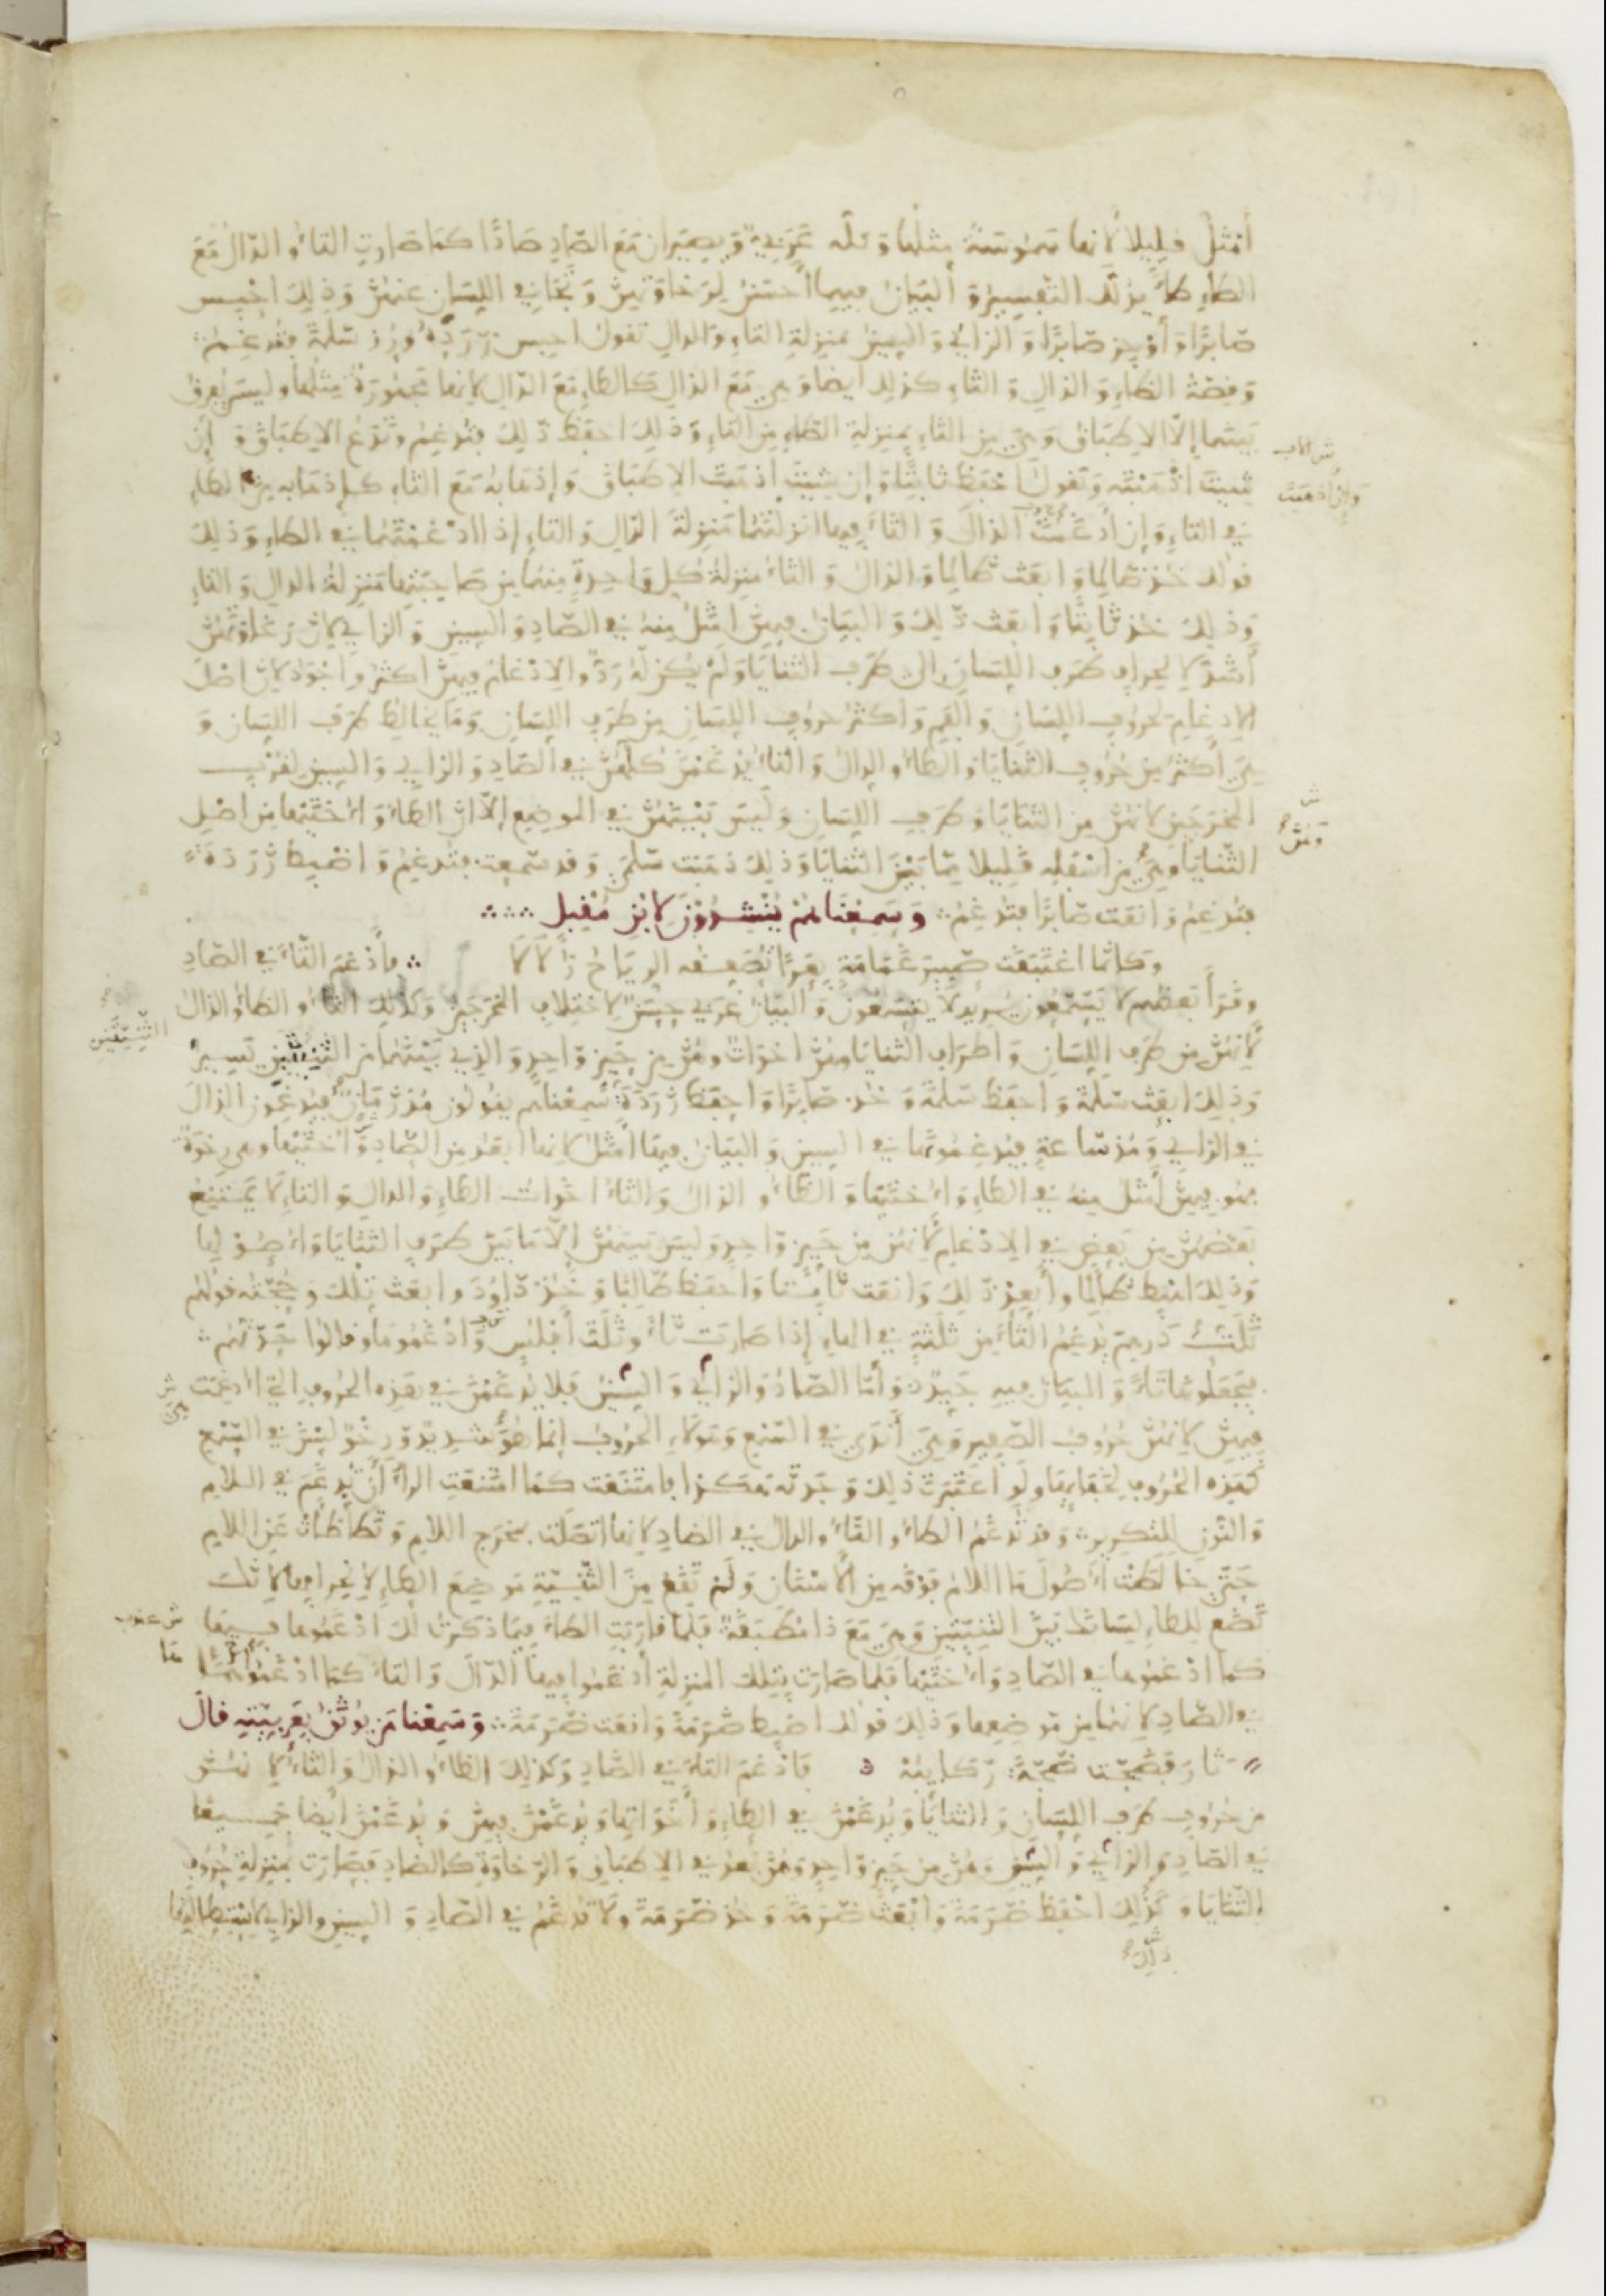 أمثل قليلا لأنها مهموسة مثلها وكله عربي ويصيران مع الصاد صادا كما صارت التاء والدال مع
الطاء طاء يدلك التفسير والبيان فيها أحسن لرخاوتهن وتجافي اللسان عنهن وذلك احبس
صابرا وأوجز صابرا والزاي والسين بمنزلة التاء والدال تقول احبس زردة ورز سلمة فتدغم
وقصة الظاء والذال والثاء كذلك أيضا وهي مع الذال كالطاء مع الدال لأنها مجهورة مثلها وليس يفرق
بينهما إلا الإطباق وهي من الثاء بمنزلة الطاء من التاء وذلك احفظ ذلك فتدغم وتدع الإطباق وإن
شئت أذهبته وتقول احفظ ثابتا وإن شئت أذهبت الإطباق وإذهابه مع الثاء كإذهابه من الطاء
في التاء وإن أدغمت الذال والثاء فيها أنزلتهما منزلة الدال والتاء إذا أدغمتهما في الطاء وذلك
قولك خذ ظالما وابعث ظالما والذال والثاء منزلة كل واحدة منهما من صاحبتها منزلة الدال والتاء
وذلك خذ ثابتا وابعث ذلك والبيان فيهن أمثل منه في الصاد والسين والزاي لأن رخاوتهن
أشد لانحراف طرف اللسان إلى طرف الثنايا ولم يكن له رد والإدغام فيهن أكثر وأجود لأن أصل
الإدغام لحروف اللسان والفم وأكثر حروف اللسان من طرف اللسان وما يخالط طرف اللسان و
هي أكثر من حروف الثنايا والطاء والدال والتاء يدغمن كلهن في الصاد والزاي والسين لقرب
المخرجين لأنهن من الثنايا وطرف اللسان وليس بينهن في الموضع إلا أن الطاء وأختيها من أصل
الثنايا وهي من أسفله قليلا مما بين الثنايا وذلك ذهبت سلمى وقد سمعت فتدغم واضبط زردة
فتدغم وانعت صابرا فتدغم وسمعناهم ينشدون لابن مقبل
وكأنما اغتبقت صبير غمامة بعرا تصفقه الرياح زلالا فأدغم التاء في الصاد
وقرأ بعضهم لا يسمعون يريد لا يتسمعون والبيان عربي حسن لاختلاف المخرجين وكذلك الثاء والظاء والذال
لأنهن من طرف اللسان وأطراف الثنايا وهن أخوات وهن من حيز واحد والذي بينهما من الثنيتين يسير
وذلك ابعث سلمة واحفظ سلمة وخذ صابرا واحفظ زردة سمعناهم يقولون مذ زمان فيدغمون الذال
في الزاي ومذ ساعة فيدغمونها في السين والبيان فيها أمثل لأنها أبعد من الصاد وأختيها وهي رخوة
فهو فيهن أمثل منه في الطاء وأختيها والظاء والذال والثاء أخوات الطاء والدال والتاء لا يمتنع
بعضهن من بعض في الإدغام لأنهن من حيز واحد وليس بينهن إلا ما بين طرف الثنايا وأصولها
وذلك اهبط ظالما وأبعد ذلك وانعت ثابتا واحفظ طالبا وخذ داود وابعث تلك وحجته قولهم
ثلث دريهم يدغم الثاء من ثلثة في الهاء إذا صارت تاء وثلث أفلس وأدغموها وقالوا حدتهم
فيجعلونها تاء والبيان فيه جيد وأما الصاد والزاي والسين فلا يدغمن في هذه الحروف التي أدغمت
فيهن لأنهن حروف الصفير وهي أندى في السمع وهؤلاء الحروف إنما هو شديد ورخو ليس في السمع
كهذه الحروف لخفائها ولو اعتبرت ذلك وجدته هكذا فامتنعت كما امتنعت الراء أن تدغم في اللام
والنون للتكرير وقد تدغم الطاء والتاء والدال في الضاد لأنها اتصلت بمخرج اللام وتطأطأت عن اللام
حتى خالطت أصول ما اللام فوقه من الأسنان ولم تقع من الثنية موضع الطاء لانحرافها لأنك
تضع للطاء لسانك بين الثنيتين وهي مع ذا مطبقة فلما قاربت الطاء فيما ذكرت لك أدغموها فيها
كما أدغموها في الصاد وأختيها فلما صارت بتلك المنزلة أدغموا فيها الدال والتاء كما أدغموهما
في الصاد لأنهما من موضعها وذلك قولك اضبط ضرمة وانعت ضرمة وسمعنا من يوثق بعربيته قال
ثار فضجت ضجة ركائبه فأدغم التاء في الضاد وكذلك الظاء والذال والثاء لأنهن
من حروف طرف اللسان والثنايا ويدغمن في الطاء وأخواتها ويدغمن فيهن ويدغمن أيضا جميعا
في الصاد والزاي والسين وهن من حيز واحد وهن بعد في الإطباق والرخاوة كالضاد فصارت بمنزلة حروف
الثنايا وكذلك احفظ ضرمة وابعث ضرمة وخذ ضرمة ولا تدغم في الصاد والسين والزاي لاستطالتها
وإن أذهبت
وهن
الثنيتين
هي
ها
ذلك